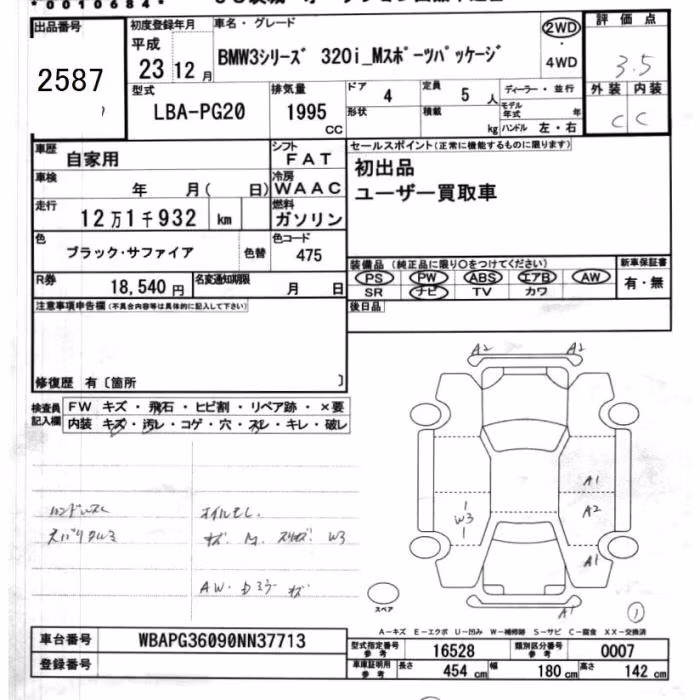 *0010684*
出品番号
2587
初度登録年月
平成
23 12月
車名・グレード
BMW3シリーズ 320i_Mスポーツパッケージ
2WD
・
4WD
評価点
3.5
型式
LBA-PG20
排気量
1995
CC
ドア
4
形状
定員
5 人
積載
kg
ディーラー・並行
モデル年式 年
ハンドル 左・右
外装 内装
C C
車歴
自家用
シフト
FAT
車検
年 月( 日)
冷房
WAAC
走行
12万1千932 km
燃料
ガソリン
色
ブラック・サファイア
色替
色コード
475
R券
18,540 円
名変通知期限
月 日
セールスポイント(正常に機能するものに限ります)
初出品
ユーザー買取車
装備品 (純正品に限り○をつけてください)
PS PW ABS エアB AW
SR ナビ TV カワ
新車保証書
有・無
後日品
注意事項申告欄(不具合内容等は具体的に記入して下さい)
修復歴 有〔箇所 〕
検査員記入欄
FW キズ・飛石・ヒビ割・リペア跡・×要
内装 キズ・汚レ・コゲ・穴・スレ・キレ・破レ
A2 A2
A1
A2
W3
A1
A1
スペア
1
A-キズ E-エクボ U-凹み W-補修跡 S-サビ C-腐食 XX-交換済
車台番号
WBAPG36090NN37713
登録番号
型式指定番号 参考
16528
類別区分番号 参考
0007
車庫証明用 参考
長さ 454 cm 幅 180 cm 高さ 142 cm